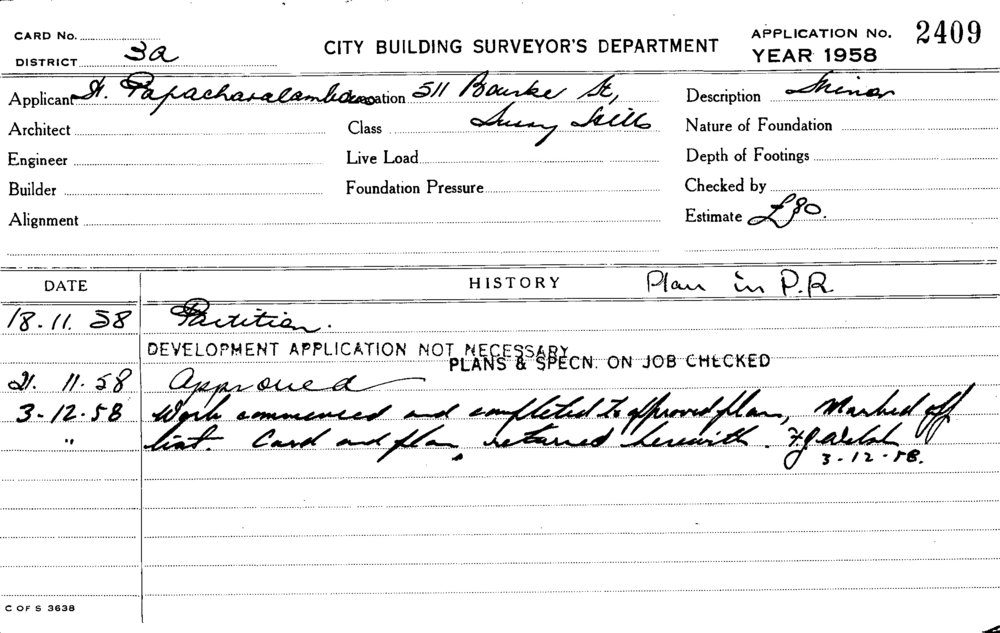 CARD No.
DISTRICT 3a
CITY BUILDING SURVEYOR'S DEPARTMENT
APPLICATION No. 2409
YEAR 1958
Applicant Papacharalambous Location 511 Bourke St, Description Minor
Architect Class Surry Hills Nature of Foundation
Engineer Live Load Depth of Footings
Builder Foundation Pressure Checked by
Alignment Estimate £80.
DATE HISTORY Plan in P.R.
18.11.58 Partition.
DEVELOPMENT APPLICATION NOT NECESSARY
PLANS & SPECN. ON JOB CHECKED
21.11.58 Approved
3-12-58 Work commenced and completed to approved plan, Marked off
" list. Card and plan, returned herewith. F.J. Welsh
3-12-58.
C OF S 3638